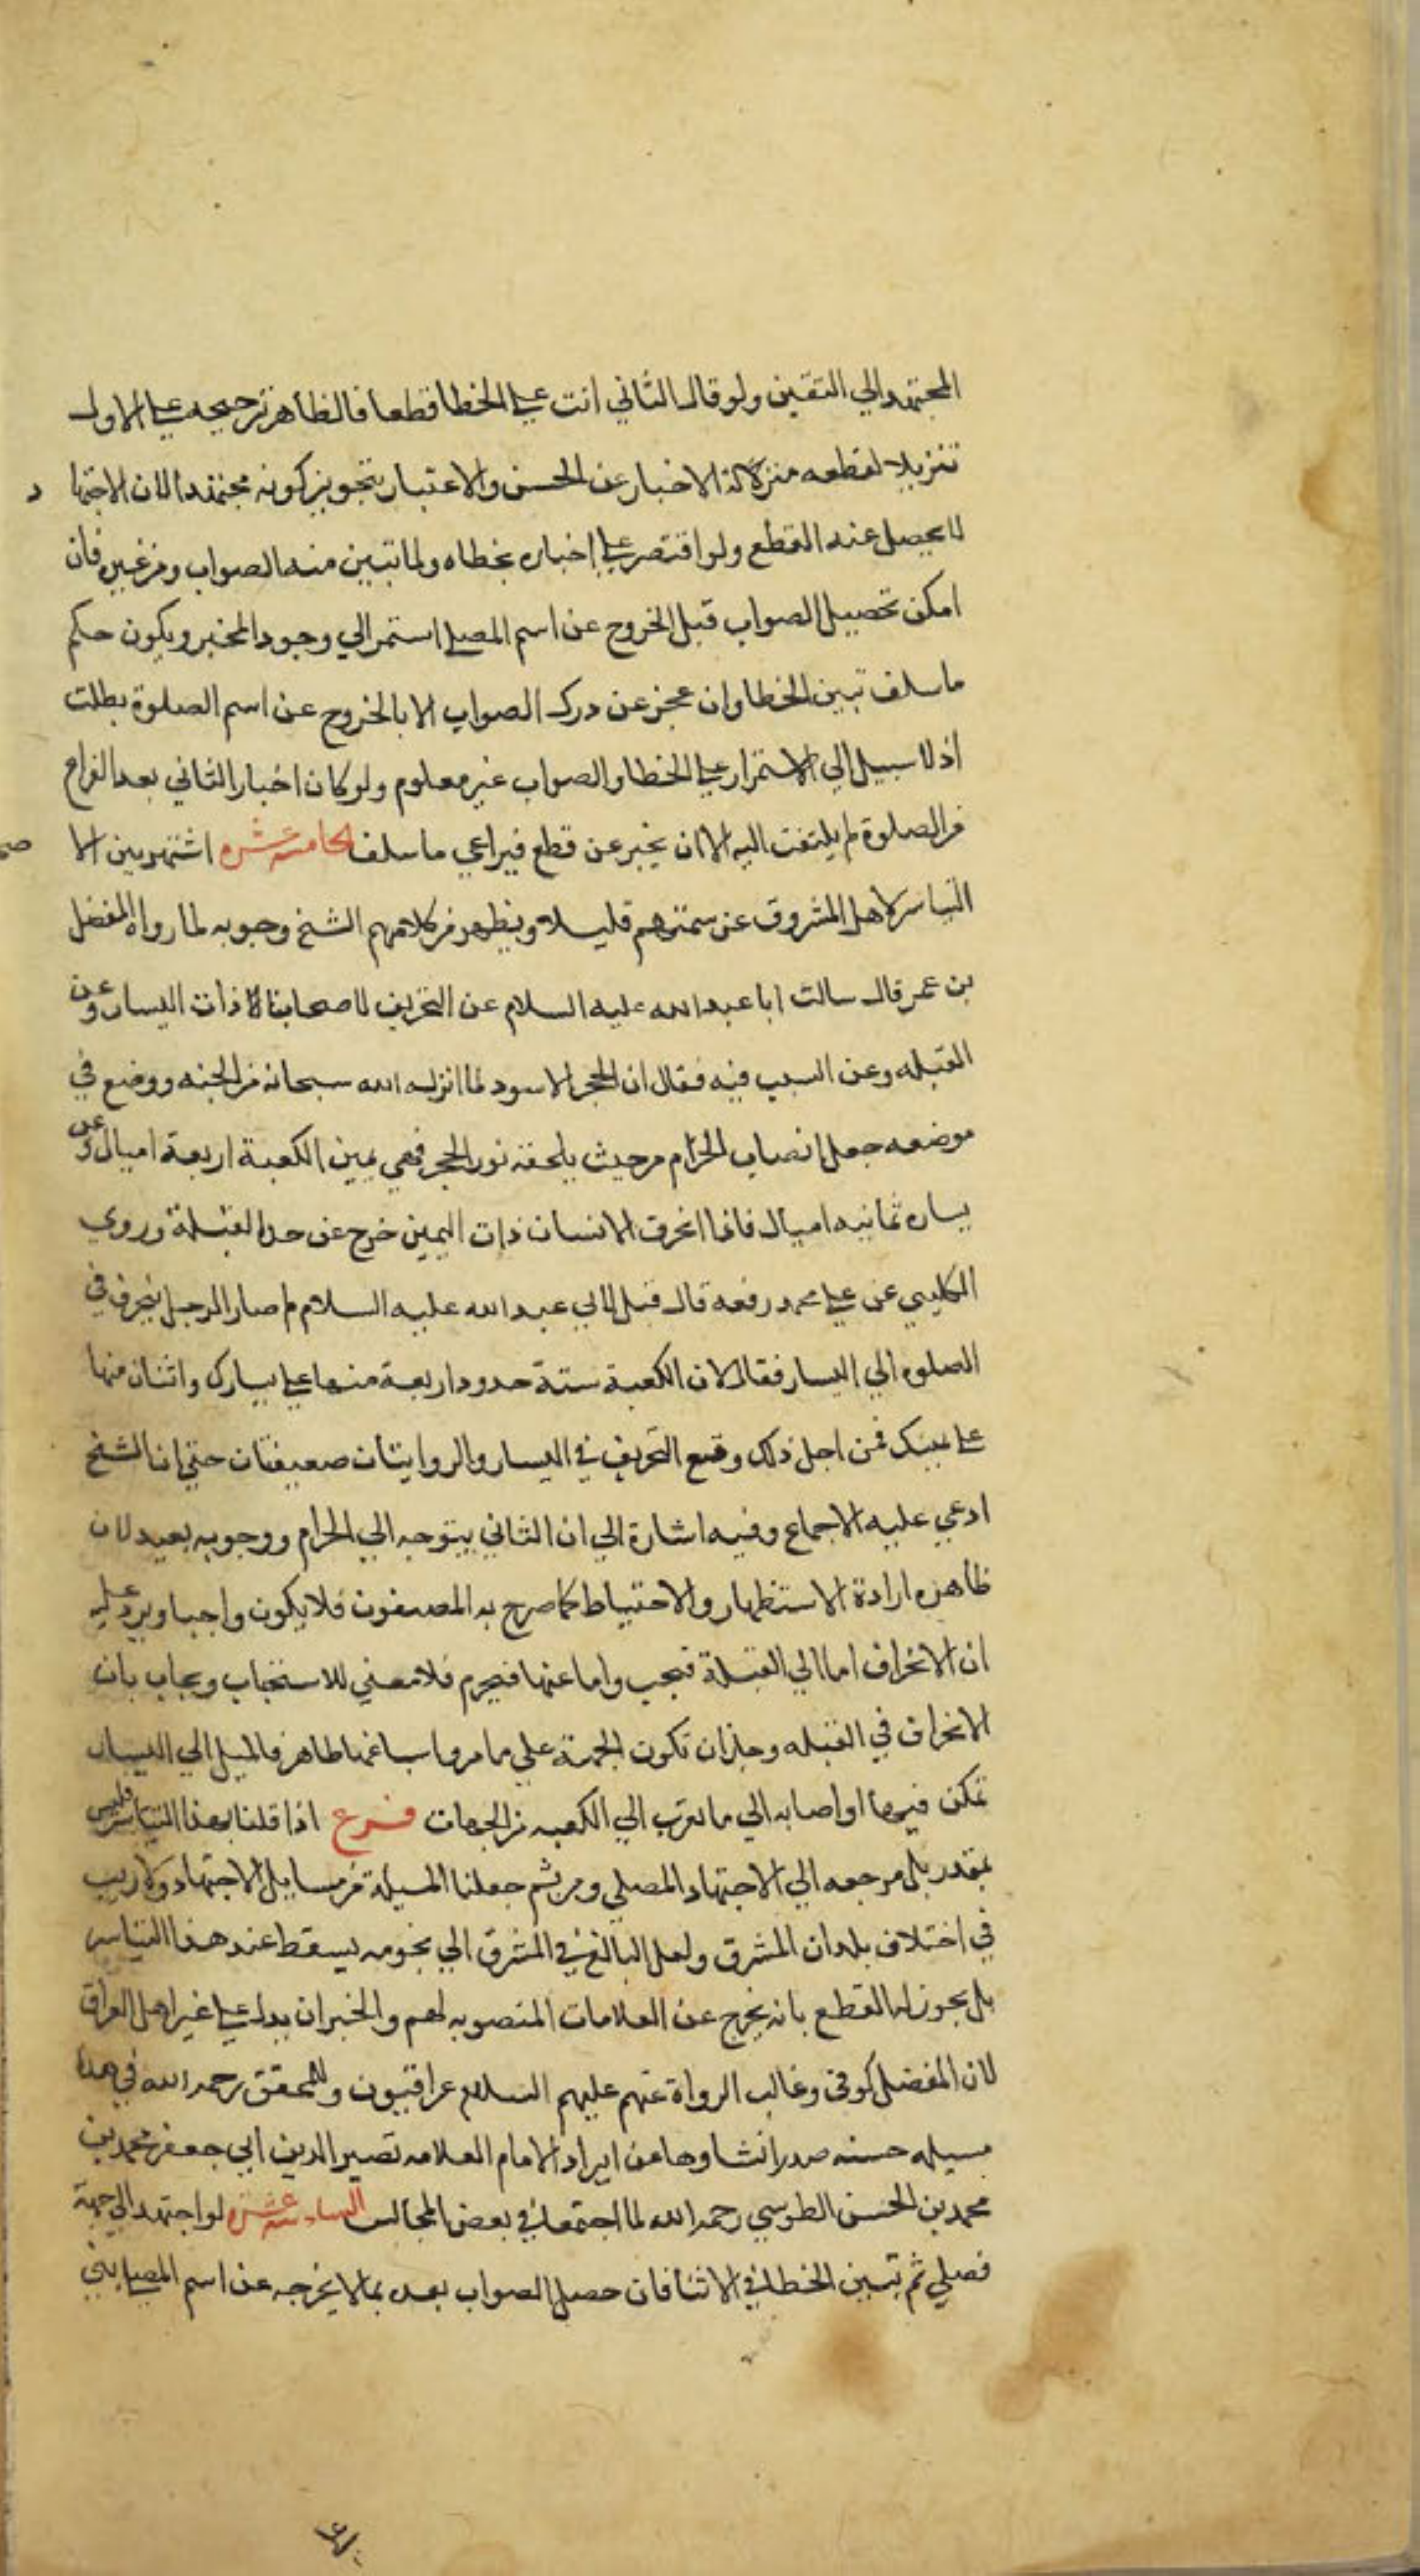 المجتهد الي التقين ولو قال الثاني انت علي الخطا قطعا فالظاهر ترجيحه علي الاول
تنزيلا لقطعه منزلة الاخبار عن الحسن والاعتبار بتجويز كونه مجتهدا لان الاجتها د
لا يحصل عنه القطع ولو اقتصر علي اخباره بخطاه ولما تبين منه الصواب ومن غيره فان
امكن تحصيل الصواب قبل الخروج عن اسم المصلي استمر الي وجود المخبر ويكون حكم
ما سلف تبين الخطا وان عجز عن درك الصواب الا بالخروج عن اسم الصلوة بطلت
اذ لا سبيل الي الاستمرار علي الخطا والصواب غير معلوم ولو كان اخبار الثاني بعد الفراغ
من الصلوة لم يلتفت اليه الا ان يخبر عن قطع فيراعي ما سلف الخامسة عشره اشتهر بين الا صحا
التياسر لاهل المشروق عن سمتهم قليلا ويظهر من كلامهم الشيخ وجوبه لما رواه المفضل
بن عمر قال سالت ابا عبد الله عليه السلام عن التحريف لاصحابنا ذات اليسار وعن
القبله وعن السبب فيه فقال ان الحجر الاسود لما انزله الله سبحانه من الجنه ووضع في
موضعه جعل انصاب الحرام من حيث يلحقه نور الحجر فهي يمين الكعبة اربعة اميال وعن
يساره ثمانيه اميال فاذا انحرف الانسان ذات اليمين خرج عن حد القبلة وروي
الكليني عن علي محمد رفعه قال قيل لابي عبد الله عليه السلام لم صار الرجل ينحرف في
الصلوه الي اليسار فقال لان الكعبة ستة حدود اربعة منها علي يسارك واثنان منها
علي يمينك فمن اجل ذلك وقع التحريف في اليسار والروايتان ضعيفتان حتي ان الشيخ
ادعي عليه الاجماع وفيه اشارة الي ان الثاني يتوجه الي الحرام ووجوبه بعيد لان
ظاهره ارادة الاستظهار والاحتياط كما صرح به المصنفون فلا يكون واجبا ويرد عليه
ان الانحراف اما الي القبلة فيجب واما عنها فيحرم فلا معني للاستحباب ويجاب بان
الانحراف في القبله وجاز ان تكون الجهة علي ما مر واسباغها ظاهر فالميل الي اليسار
تمكن فيها او اصابه الي ما يقرب الي الكعبه من الجهات فرع اذا قلنا بهذا التياسر فليس
بمقدر بل مرجعه الي الاجتهاد المصلي ومن ثم جعلنا المسيلة من مسايل الاجتهاد ولا ريب
في اختلاف بلدان المشرق ولعل البالغ في المشرق الي تخومه يسقط عنده هذا التياسر
بل يجوز له القطع بانه يخرج عن العلامات المنصوبه لهم والخبران يدل علي غير اهل العراق
لان المفضل كوفي وغالب الرواة عنهم عليهم السلام عراقيون وللمحقق رحمه الله في هذا
مسيله حسنه صدر انشاوها عن ايراد الامام العلامه نصير الدين ابي جعفر محمد بن
محمد بن الحسن الطوسي رحمه الله لما اجتمعا في بعض المجالس السادسة عشره لو اجتهد الي جهة
فصلي ثم تبين الخطا في الاثنا فان حصل الصواب بعده بما لا يخرجه عن اسم المصلي بني